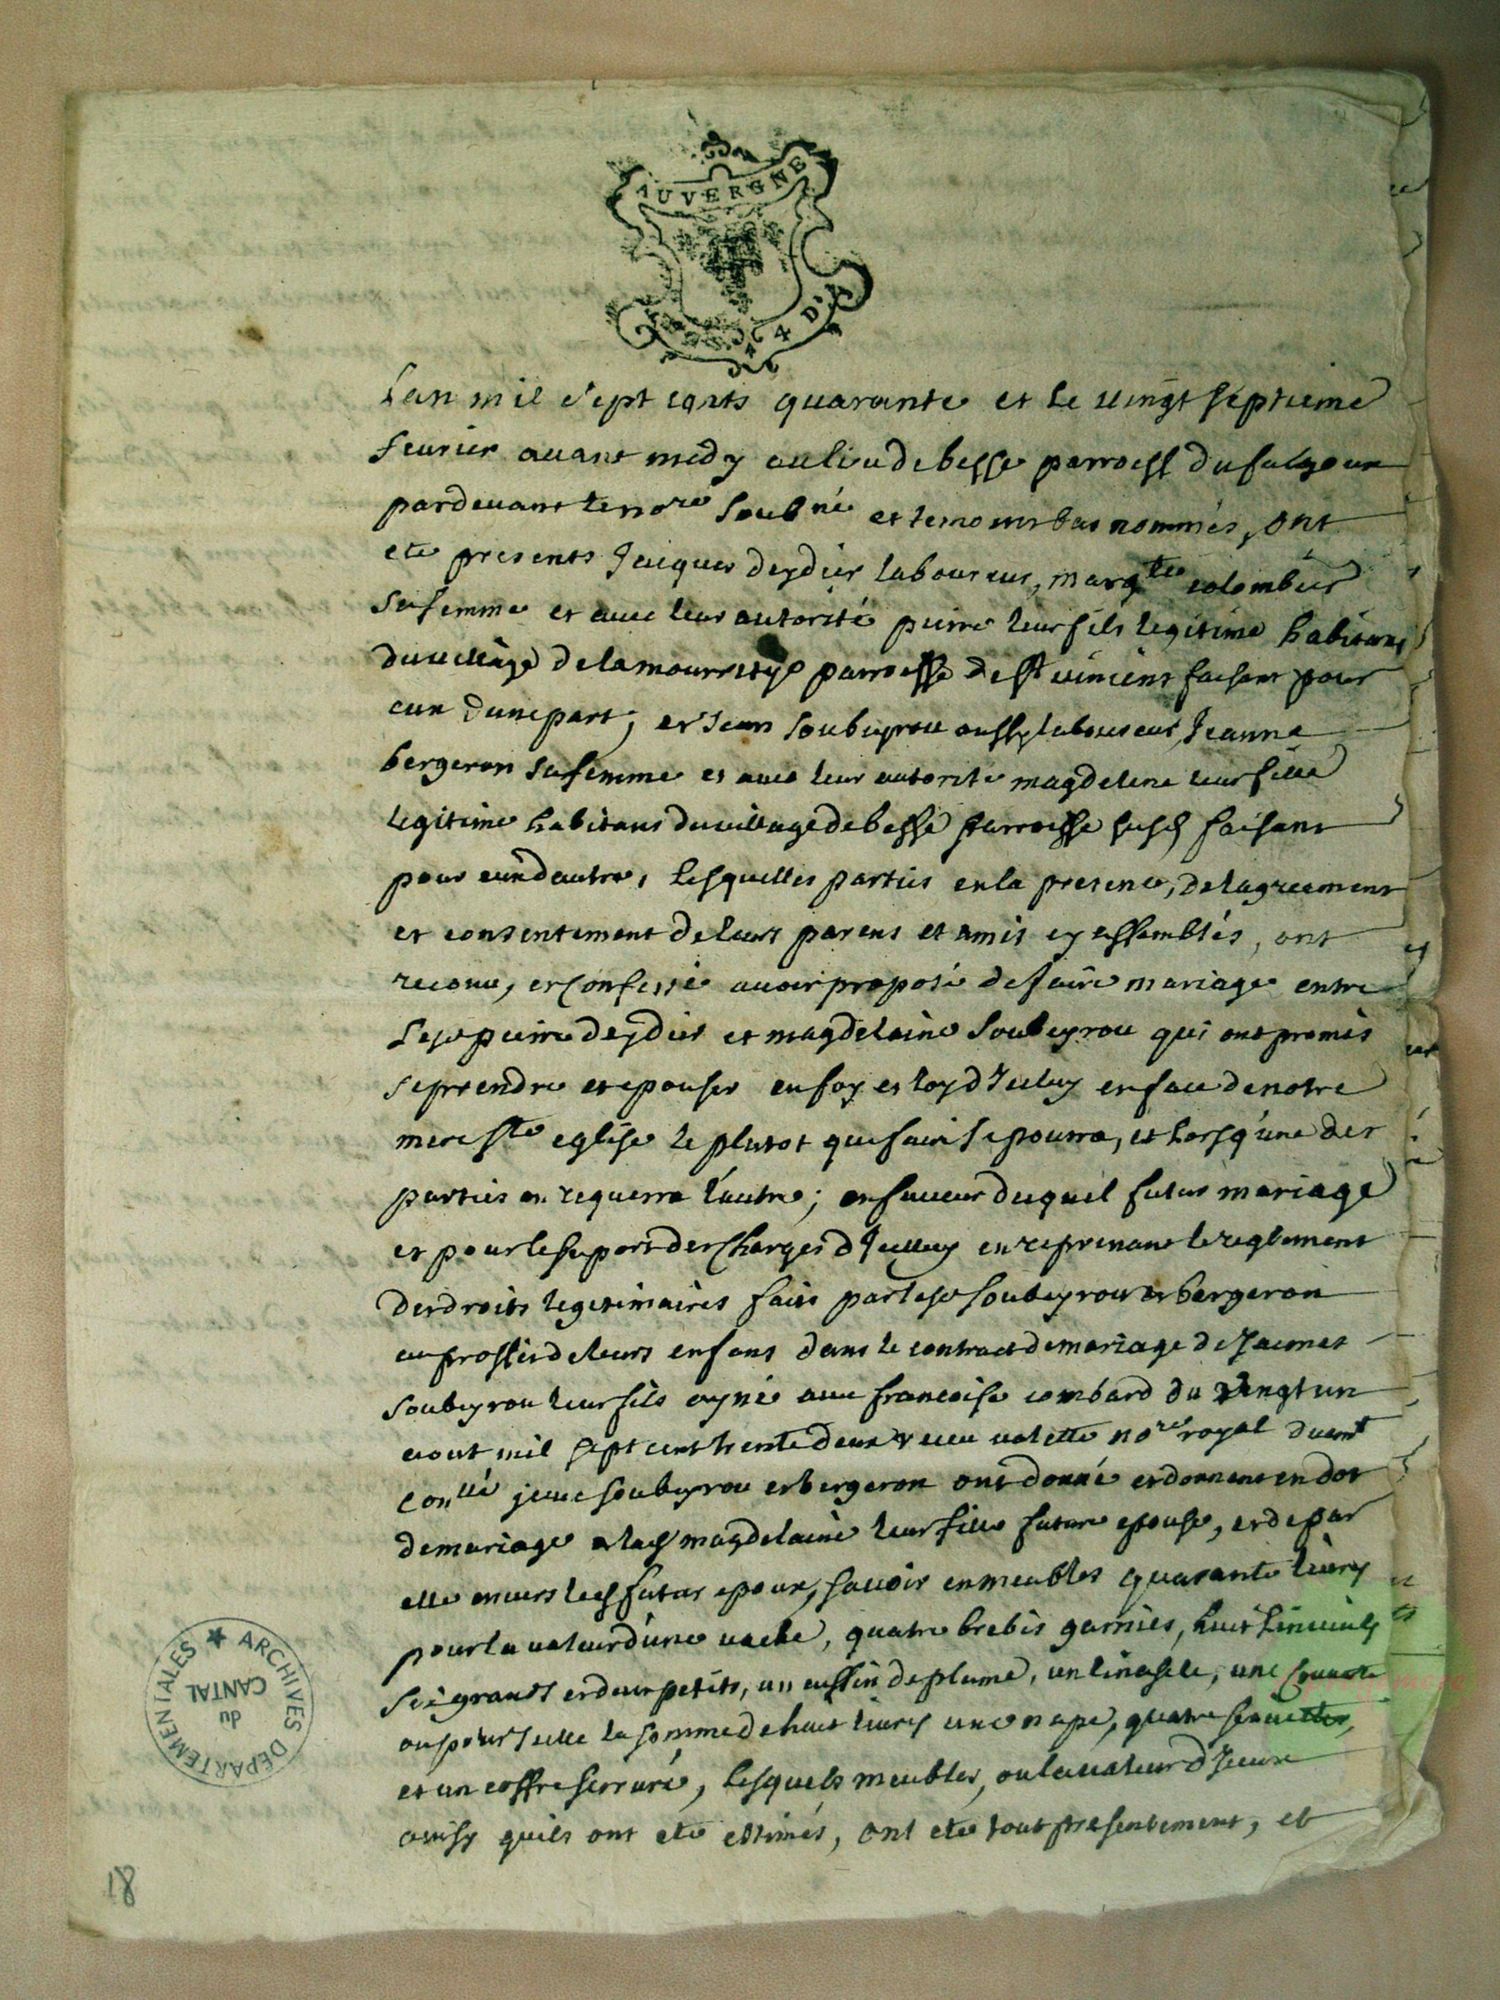 AUVERGNE
4 D.
Lan mil sept cents quarante et le vingt septieme
fevrier avant midy au lieu de besse parroess du falgoux
pardevant le nore soubné et temoins bas nommés, ont
ete presents Jacques deydier laboureur, margte colombier
sa femme et avec leur autorité pierre leur fils legitime habitans
du village de lamourretye parroesse de st vincent faisant pour
eux dune part; et Jean soubeyrou aussy laboureur, Jeanne
bergeron sa femme et avec leur autorité magdelene leur fille
legitime habitans du village de besse parroesse susd faisant
pour eux dautre, lesquelles parties en la presence, de lagreement
et consentement de leurs parens et amis cy assemblés, ont
reconu, et confessé avoir proposé de faire mariage entre
lesd pierre deydier et magdelaine soubeyrou qui ont promis
se prendre et epouser en foy et loy d'Iceluy en face de notre
mere ste eglise le plutot que faire se pourra, et lorsq'une des
parties en requerra l'autre; en faveur duquel futur mariage
et pour le suport des charges d'Icelluy en reprenant le reglement
des droits legitimaires faits par lesd soubeyrou et bergeron
au proffit de leurs enfans dans le contract de mariage de Jacmet
soubeyrou leur fils ayné avec francoise lombard du vingt un
aout mil sept cent trente deux receu valette nore royal duemt
conllé yceux soubeyrou et bergeron ont donné et donnent en dot
de mariage a lad magdelaine leur fille future epouse, et de par
elle envers led futur epoux, savoir en meubles quarante livres
pour la valeur d'une vache, quatre brebis garnies, huit linceuls
six grands et deux petits, un cussin de plume, un linsele, une couverte
ou pour icelle la somme de huit livres une nape, quatre serviettes,
et un coffre serruré, lesquels meubles, ou la valeur d'Iceux
ainsy quils ont ete estimés, ont ete tout presentement, et
ARCHIVES DEPARTEMENTALES
du
CANTAL
18